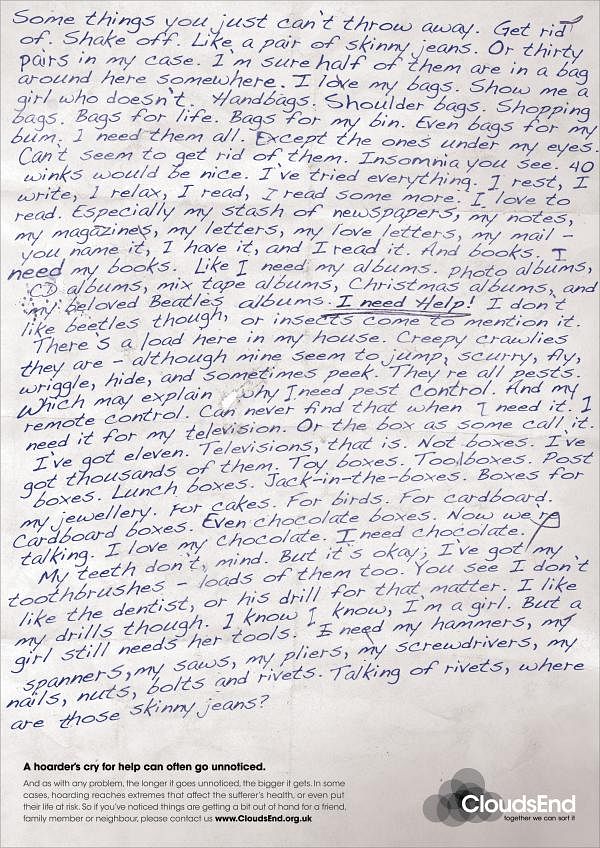 Some things you just can't throw away. Get rid
of. Shake off. Like a pair of skinny jeans. Or thirty
pairs in my case. I'm sure half of them are in a bag
around here somewhere. I love my bags. Show me a
girl who doesn't. Handbags. Shoulder bags. Shopping
bags. Bags for life. Bags for my bin. Even bags for my
bum. I need them all. Except the ones under my eyes.
Can't seem to get rid of them. Insomnia you see. 40
winks would be nice. I've tried everything. I rest, I
write, I relax, I read, I read some more. I love to
read. Especially my stash of newspapers, my notes,
my magazines, my letters, my love letters, my mail -
you name it, I have it, and I read it. And books. I
need my books. Like I need my albums. Photo albums,
CD albums, mix tape albums, Christmas albums, and
my beloved Beatles albums. I need Help! I don't
like beetles though, or insects come to mention it.
There's a load here in my house. Creepy crawlies
they are - although mine seem to jump, scurry, fly,
wriggle, hide, and sometimes peek. They're all pests.
Which may explain why I need pest control. And my
remote control. Can never find that when I need it. I
need it for my television. Or the box as some call it.
I've got eleven. Televisions, that is. Not boxes. I've
got thousands of them. Toy boxes. Toolboxes. Post
boxes. Lunch boxes. Jack-in-the-boxes. Boxes for
my jewellery. For cakes. For birds. For cardboard.
Cardboard boxes. Even chocolate boxes. Now we're
talking. I love my chocolate. I need chocolate.
My teeth don't mind. But it's okay; I've got my
toothbrushes - loads of them too. You see I don't
like the dentist, or his drill for that matter. I like
my drills though. I know I know, I'm a girl. But a
girl still needs her tools. I need my hammers, my
spanners, my saws, my pliers, my screwdrivers, my
nails, nuts, bolts and rivets. Talking of rivets, where
are those skinny jeans?
A hoarder's cry for help can often go unnoticed.
And as with any problem, the longer it goes unnoticed, the bigger it gets. In some
cases, hoarding reaches extremes that affect the sufferer's health, or even put
their life at risk. So if you've noticed things are getting a bit out of hand for a friend,
family member or neighbour, please contact us www.CloudsEnd.org.uk
CloudsEnd
together we can sort it